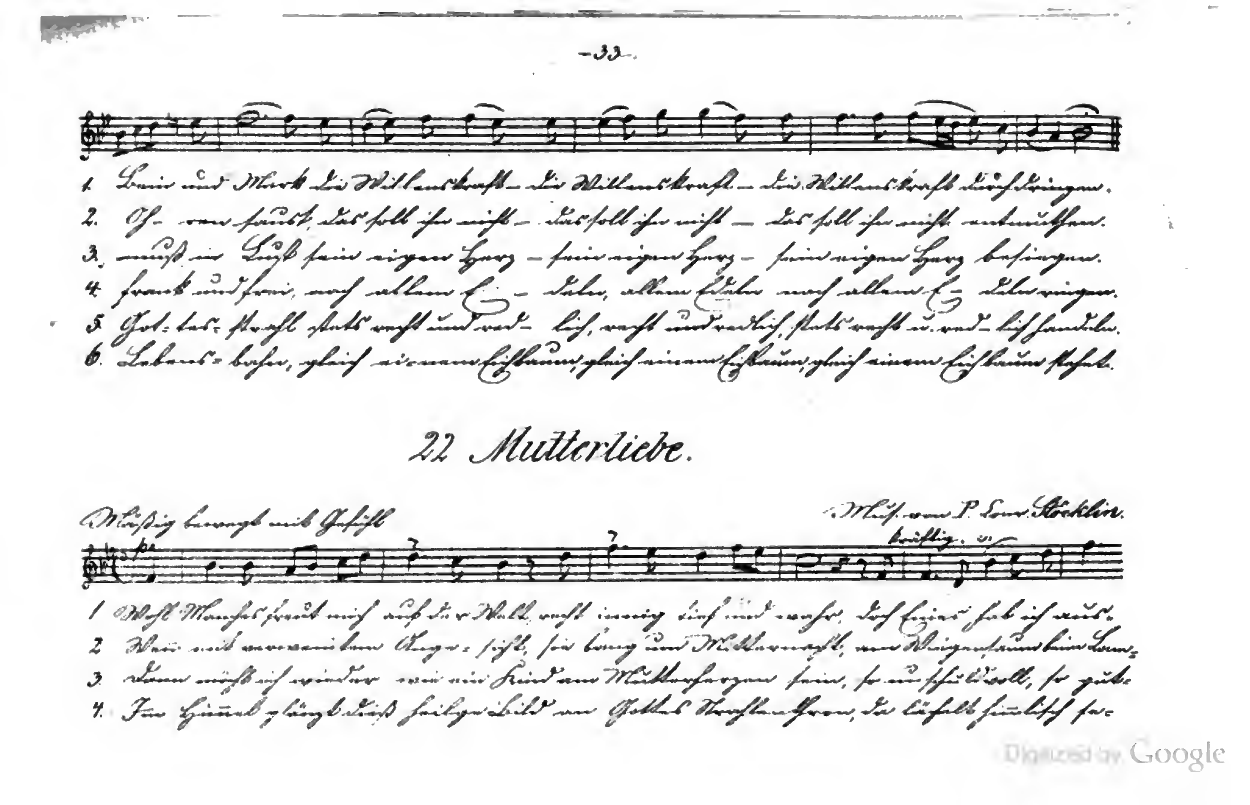 -33-
1. Bein und Mark die Willenskraft – die Willenskraft – die Willenskraft durchdringen.
2. Oh- ren saust, das soll ihn nicht – das soll ihn nicht – das soll ihn nicht entmuthen.
3. muß in Lust sein eigen Herz – sein eigen Herz – sein eigen Herz besiegen.
4. frank und frei, nach allem E - - deln, allem Edeln nach allem E - deln ringen.
5. Got-tes-strahl stets recht und red- lich, recht und redlich, stets recht u. red-lich handeln.
6. Lebens-bahn, gleich ei-nem Eichbaum, gleich einem Eichbaum, gleich einem Eichbaum stehet.
22 Mutterliebe.
Mäßig bewegt mit Gefühl
Mus. von P. Leon. Stöcklin.
kräftig.
1 Wohl Manches freut mich auf der Welt, recht innig tief und wahr, doch Eines hab ich aus-
2 Wenn mit verweintem Ange-sicht, sie bang um Mitternacht, am Wiegensaum beim
3. Dann möcht ich wieder wie ein Kind am Mutterherzen sein, so unschuldvoll, so gut-
4. Im Himmel glänzt dieß heilge Bild an Gottes Strahlenthron, da lächelt himmlisch se-
Digitized by Google